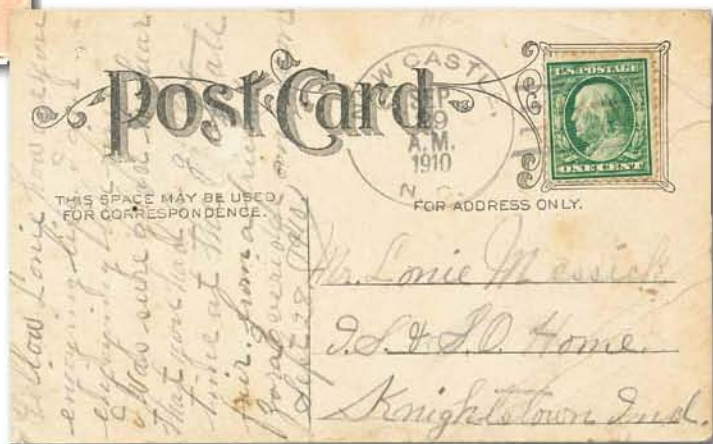 Post Card
NEW CASTLE
SEP
29
A.M.
1910
N. D.
U.S. POSTAGE
ONE CENT
THIS SPACE MAY BE USED
FOR CORRESPONDENCE.
FOR ADDRESS ONLY.
Hellow Lonie how are you
enjoying life
enjoying life
I was sure glad to hear
that you had a good
time at the State
fair. from a friend
Sept 28 1910.
Mr. Lonie Messick
I.S.&S.O. Home.
Knightstown Ind.